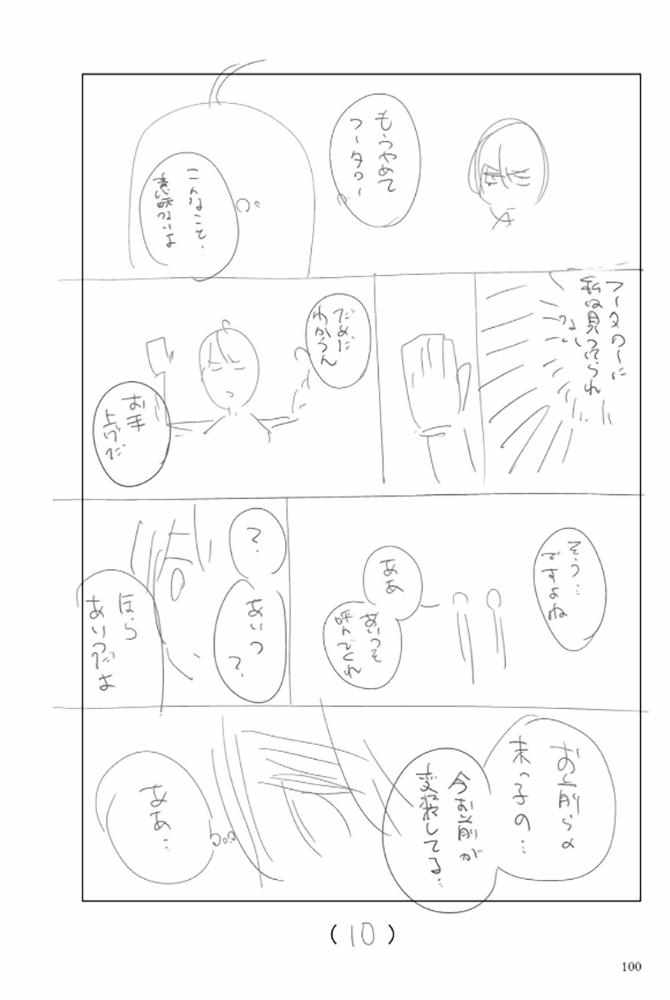 もうやめて
フータロー
こんなこと、
意味ないよ
フータローに
私は見つけられ
ない
だめだ
わからん
お手
上げだ
そう…
ですよね
ああ
あいつも
呼んでくれ
?
あいつ
?
ほら
あいつだよ
お前らの
末っ子の…
今お前が
変装してる…
ああ…
(10)
100